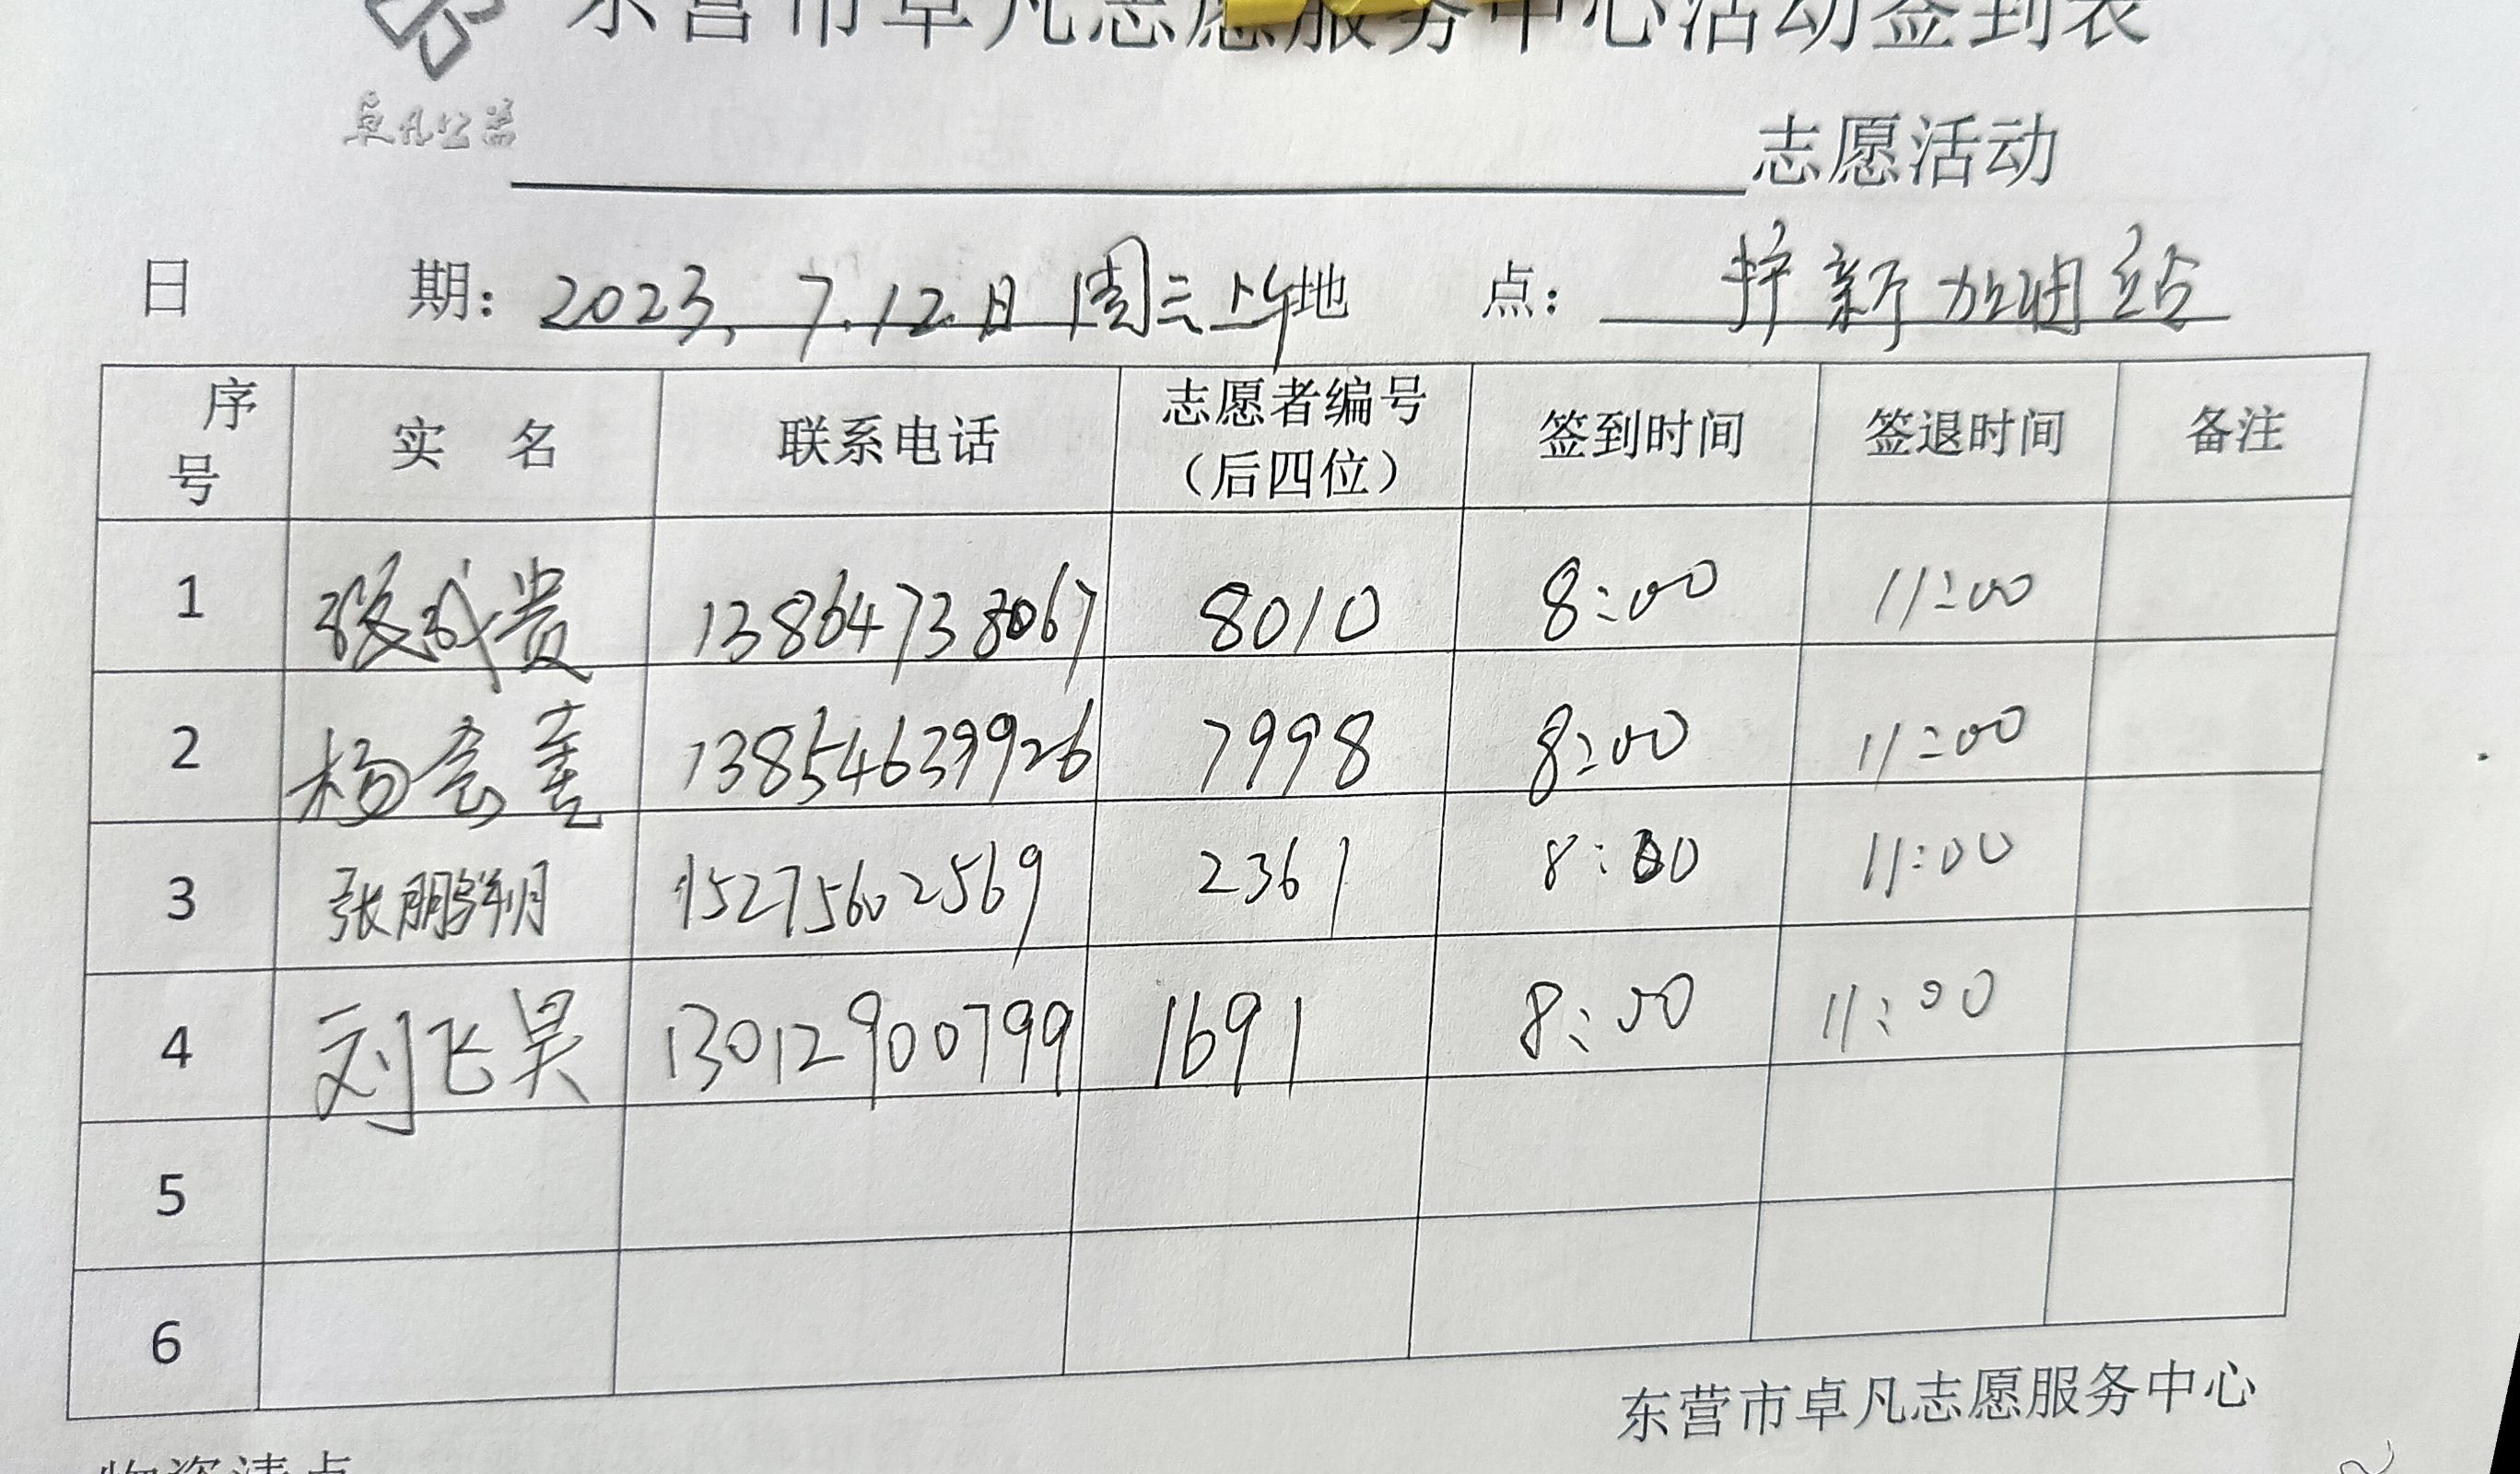 东营市卓凡志愿服务中心活动签到表
卓凡公益
志愿活动
日 期：2023.7.12.日周三上午 地 点：护新加油站
序号 实 名 联系电话 志愿者编号（后四位） 签到时间 签退时间 备注
1 张成贵 13864738067 8010 8:00 11:00
2 杨会喜 13854639926 7998 8:00 11:00
3 张鹏翔 15275602569 2361 8:00 11:00
4 刘飞昊 13012900799 1691 8:00 11:00
5
6
东营市卓凡志愿服务中心
物资清点